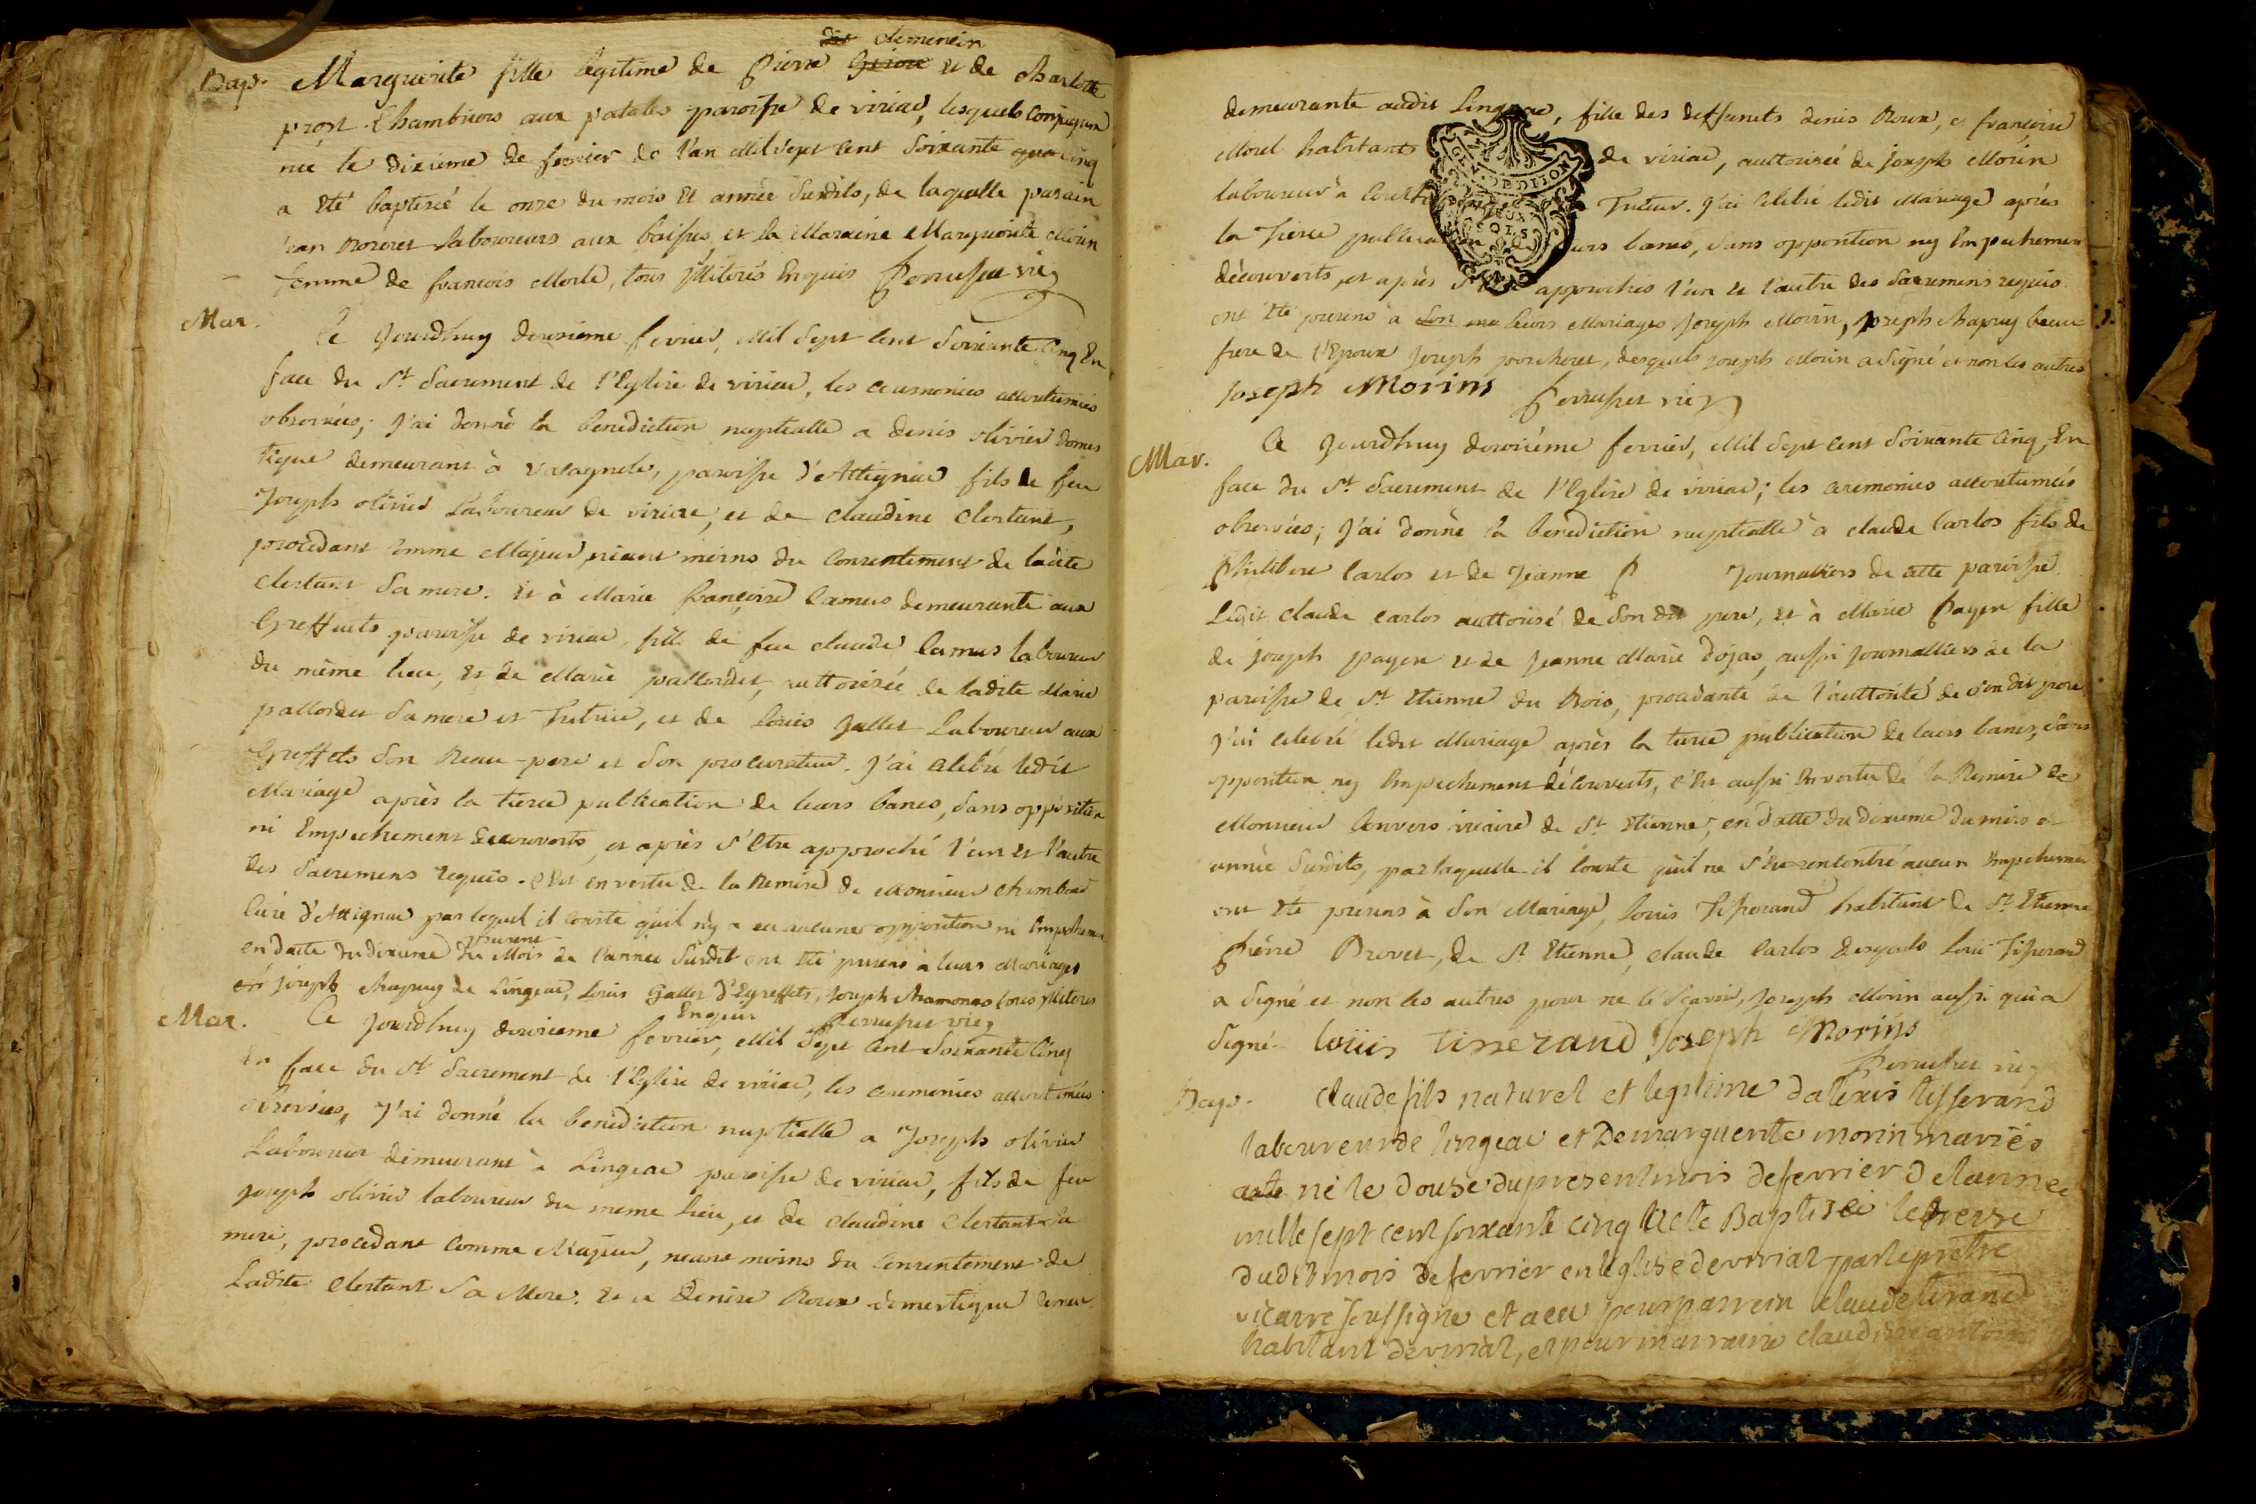 dit Clemencin
Bap. Marguerite fille légitime de Pierre et de Charlotte
prost Chambriers aux patales paroisse de viriac, lesquels conjugua
née le dixieme de fevrier de l'an Mil Sept Cent Soixante qua cinq
a été baptisée le onze du mois et année Susdits, de laquelle parain
jean laboureurs aux baisses, et la Maraine Marguerite Morin
femme de francois Morle, tous illiterés Enquis Perrusset vic
Mar.
Ce Jourdhuy douzieme fevrier, Mil Sept Cent Soixante Cinq En
face du St Sacrement de l'Eglise de viriac, les ceremonies accoutumées
observées; J'ai donné la benediction nuptialle a denis olivier domes
tique demeurant à valagnole, paroisse d'Attignac fils de feu
Joseph olivier Laboureur de viriac, et de claudine Clertant,
procedant comme Majeur, neant moins du Consentement de ladite
Clertant Sa mere. et à Marie françoise Camus demeurante aux
Greffets paroisse de viriac, fille de feu claude Camus laboureur
du même lieu, et de Marie pallordet, authorisée de ladite Marie
pallordet Sa mere et Tutrice, et de Louis Gallet Laboureur aux
Greffets Son Beau-pere et Son procurateur. J'ai celebré ledit
Mariage après la tierce publication de leurs bancs, Sans opposition
ni Empechement decouverts, et après S'etre approché l'un et l'autre
des Sacremens requis. C'est en vertu de la Remise de Monsieur Chambard
Curé d'Attignac par lequel il conste qu'il n'y a eu aucune opposition ni Empechemen
present
en datte du dixieme du Mois de l'année Susdit ont été presens à leurs Mariages
Joseph Chapuy de Lingeac, Louis Gallet d'Egreffets, Joseph Chamonas tous illiteres
Enquis Perrusset vic
Mar. Ce Jourdhuy douzieme fevrier, Mil Sept Cent Soixante Cinq
En face du St Sacrement de l'Eglise de viriac, les ceremonies accoutumées
observées, J'ai donné la benediction nuptialle a Joseph olivier
Laboureur demeurant à Lingeac paroisse de viriac, fils de feu
Joseph olivier laboureur du meme lieu, et de Claudine Clertant Sa
mere, procedant Comme Majeur, neant moins du Consentement de
Ladite Clertant Sa Mere. Et a Denise Roux domestique demeu
demeurante audit Lingeac, fille des deffunts denis Roux, et francoise
Morel habitants de viriac, authorisée de joseph Morin
laboureur à Tuteur. J'ai celebré ledit Mariage après
la Tierce publication de leurs bancs, Sans opposition ny Empechemen
découverts, et après S'etre approchés l'un et l'autre des Sacremens requis
ont été presens à Son ma leurs Mariages Joseph Morin, joseph Chapuy beau
frere de l'Epoux Joseph porcheret, desquels joseph Morin a Signé et non les autres
Joseph Morins Perrusset vic
Mar.
Ce Jourdhuy douzième fevrier, Mil Sept Cent Soixante Cinq, En
face du St Sacrement de l'Eglise de viriac; les ceremonies accoutumées
observées; J'ai donné la benediction nuptialle à claude Carlos fils de
Philibert Carlos et de Jeanne P Journalliers de cette paroisse.
Ledit Claude Carlos authorisé de Son dit pere, et à Marie Payen fille
de joseph payen et de Jeanne Marie Dojas, aussi journalliers de la
paroisse de St Etienne du Bois, procedante de l'authorité de Son dit pere
J'ai celebré ledit Mariage après la tierce publication de leurs bancs, Sans
opposition ny Empechement découverts, C'est aussi En vertu de la Remise de
Monsieur Convers vicaire de St Etienne, en datte du dixieme du mois et
année Susdits, par laquelle il conste qu'il ne S'est rencontré aucun Empechemen
ont été presens à Son Mariage, Louis Tisserand habitant de St Etienne
Pierre Brovet, de St Etienne, Claude Carlos desquels Louis Tisserand
a Signé et non les autres pour ne le Scavoir, Joseph Morin aussi qui a
Signé Loüis tisserand Joseph Morins
Perrusset vic
Bap. Claude fils naturel et legitime d'alexis tisserand
laboureur de lingeac et De marguerite morin mariés
né le douse du present mois de fevrier de l'annee
mille sept cent soixante cinq a ete Baptisé le treize
dudit mois de fevrier en l'eglise de viriat par le pretre
vicaire soussigné et a eu pour parrein claude tirand
habitant de viriat, et pour marraine claudine antoine